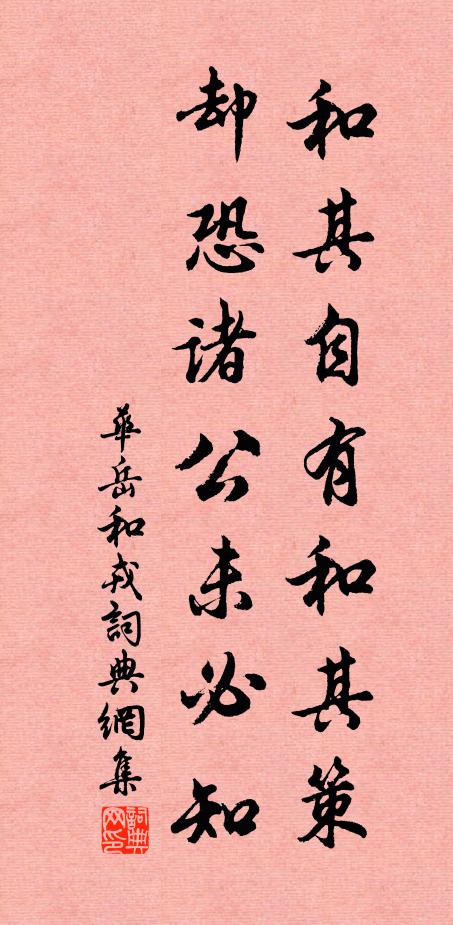 和其自有和其策
却恐诸公未必知
華岳和戎詞典網集
詞典网印